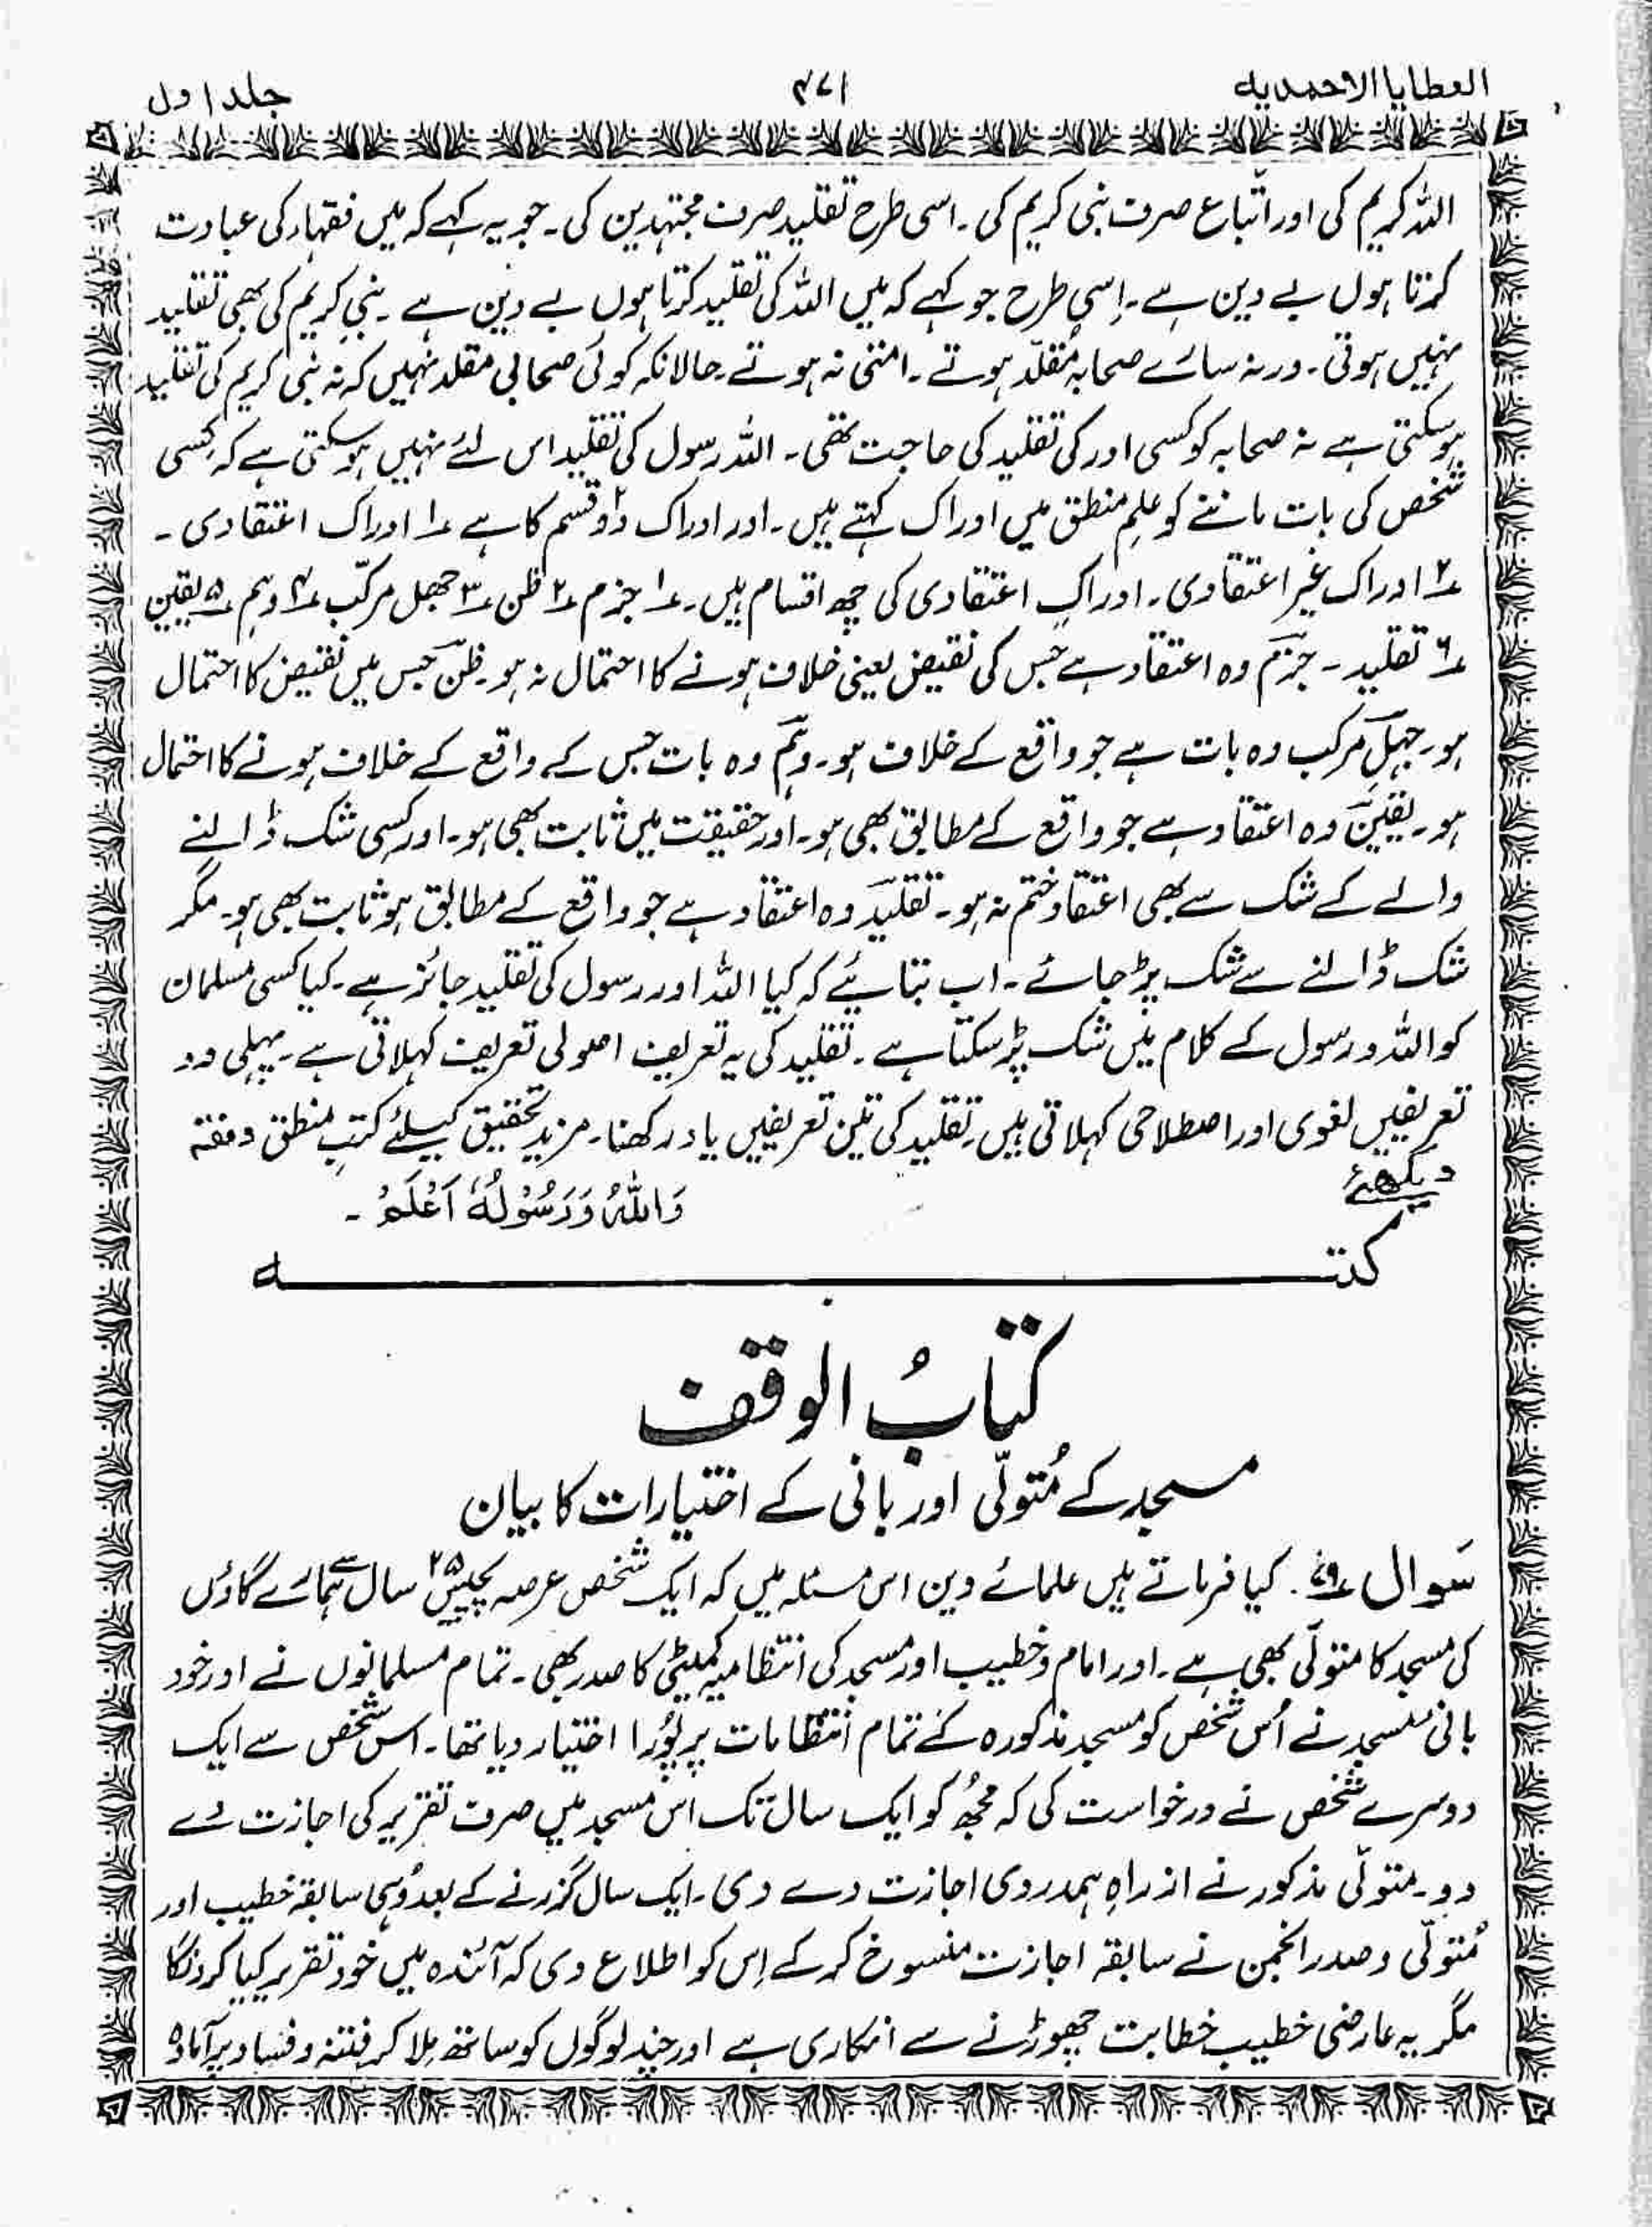 العطایا الاحمدیہ
۴۷۱
جلد اول
اللہ کریم کی اور اتباع صرف نبی کریم کی۔ اسی طرح تقلید صرف مجتہدین کی۔ جو یہ کہے کہ میں فقہاء کی عبادت
کرتا ہوں بے دین ہے۔ اِسی طرح جو کہے کہ میں اللہ کی تقلید کرتا ہوں بے دین ہے۔ نبی کریم کی بھی تقلید
نہیں ہوتی۔ ورنہ سارے صحابہ مُقلّد ہوتے۔ امتی نہ ہوتے۔ حالانکہ کوئی صحابی مقلد نہیں کہ نہ نبی کریم کی تقلید
ہو سکتی ہے نہ صحابہ کو کسی اور کی تقلید کی حاجت تھی۔ اللہ رسول کی تقلید اس لئے نہیں ہو سکتی ہے کہ کسی
شخص کی بات ماننے کو علمِ منطق میں ادراک کہتے ہیں۔ اور ادراک دو۲ قسم کا ہے ۱؎ ادراک اعتقادی۔
۲؎ ادراک غیر اعتقادی۔ ادراکِ اعتقادی کی چھ اقسام ہیں۔ ۱؎ جزم ۲؎ ظن ۳؎ جھل مرکّب ۴؎ وہم ۵؎ یقین
۶؎ تقلید۔ جزم وہ اعتقاد ہے جس کی نقیض یعنی خلاف ہونے کا احتمال نہ ہو۔ ظن جس میں نقیض کا احتمال
ہو۔ جہلِ مرکب وہ بات ہے جو واقع کے خلاف ہو۔ وہم وہ بات جس کے واقع کے خلاف ہونے کا احتمال
ہو۔ یقین وہ اعتقاد ہے جو واقع کے مطابق بھی ہو۔ اور حقیقت میں ثابت بھی ہو۔ اور کسی شک ڈالنے
والے کے شک سے بھی اعتقاد ختم نہ ہو۔ تقلید وہ اعتقاد ہے جو واقع کے مطابق ہو ثابت بھی ہو۔ مگر
شک ڈالنے سے شک پڑ جائے۔ اب بتائیے کہ کیا اللہ اور رسول کی تقلید جائز ہے۔ کیا کسی مسلمان
کو اللہ و رسول کے کلام میں شک پڑ سکتا ہے۔ تقلید کی یہ تعریف اصولی تعریف کہلاتی ہے۔ پہلی دو
تعریفیں لغوی اور اصطلاحی کہلاتی ہیں۔ تقلید کی تین تعریفیں یاد رکھنا۔ مزید تحقیق کیلئے کتبِ منطق و فقہ
دیکھئے
وَاللہُ وَرَسُوْلُہٗ اَعْلَمُ۔
کتبــــــــــــــــــــــــہ
کتابُ الوقف
مسجد کے مُتولّی اور بانی کے اختیارات کا بیان
سَوال ۷۹؎ کیا فرماتے ہیں علمائے دین اس مسئلہ میں کہ ایک شخص عرصہ پچیس ۲۵ سال سے ہمارے گاؤں
کی مسجد کا متولّی بھی ہے۔ اور امام و خطیب اور مسجد کی انتظامیہ کمیٹی کا صدر بھی۔ تمام مسلمانوں نے اور خود
بانی مسجد نے اُس شخص کو مسجد مذکورہ کے تمام انتظامات پر پُورا اختیار دیا تھا۔ اس شخص سے ایک
دوسرے شخص نے درخواست کی کہ مجھُ کو ایک سال تک اس مسجد میں صرف تقریر کی اجازت دے
دو۔ متولّی مذکور نے ازراہِ ہمدردی اجازت دے دی۔ ایک سال گزرنے کے بعد وُہی سابقہ خطیب اور
مُتولّی و صدر انجمن نے سابقہ اجازت منسوخ کر کے اِس کو اطلاع دی کہ آئندہ میں خود تقریر کیا کرونگا
مگر یہ عارضی خطیب خطابت چھوڑنے سے انکاری ہے اور چند لوگوں کو ساتھ مِلا کر فتنہ و فساد پر آمادہ